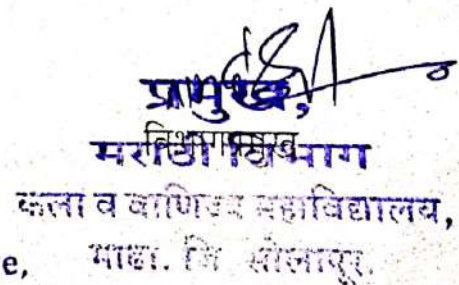 प्रामुख,
विभागप्रमुख
मराठी विभाग
कला व वाणिज्य महाविद्यालय,
e, माढा. जि सोलापूर.